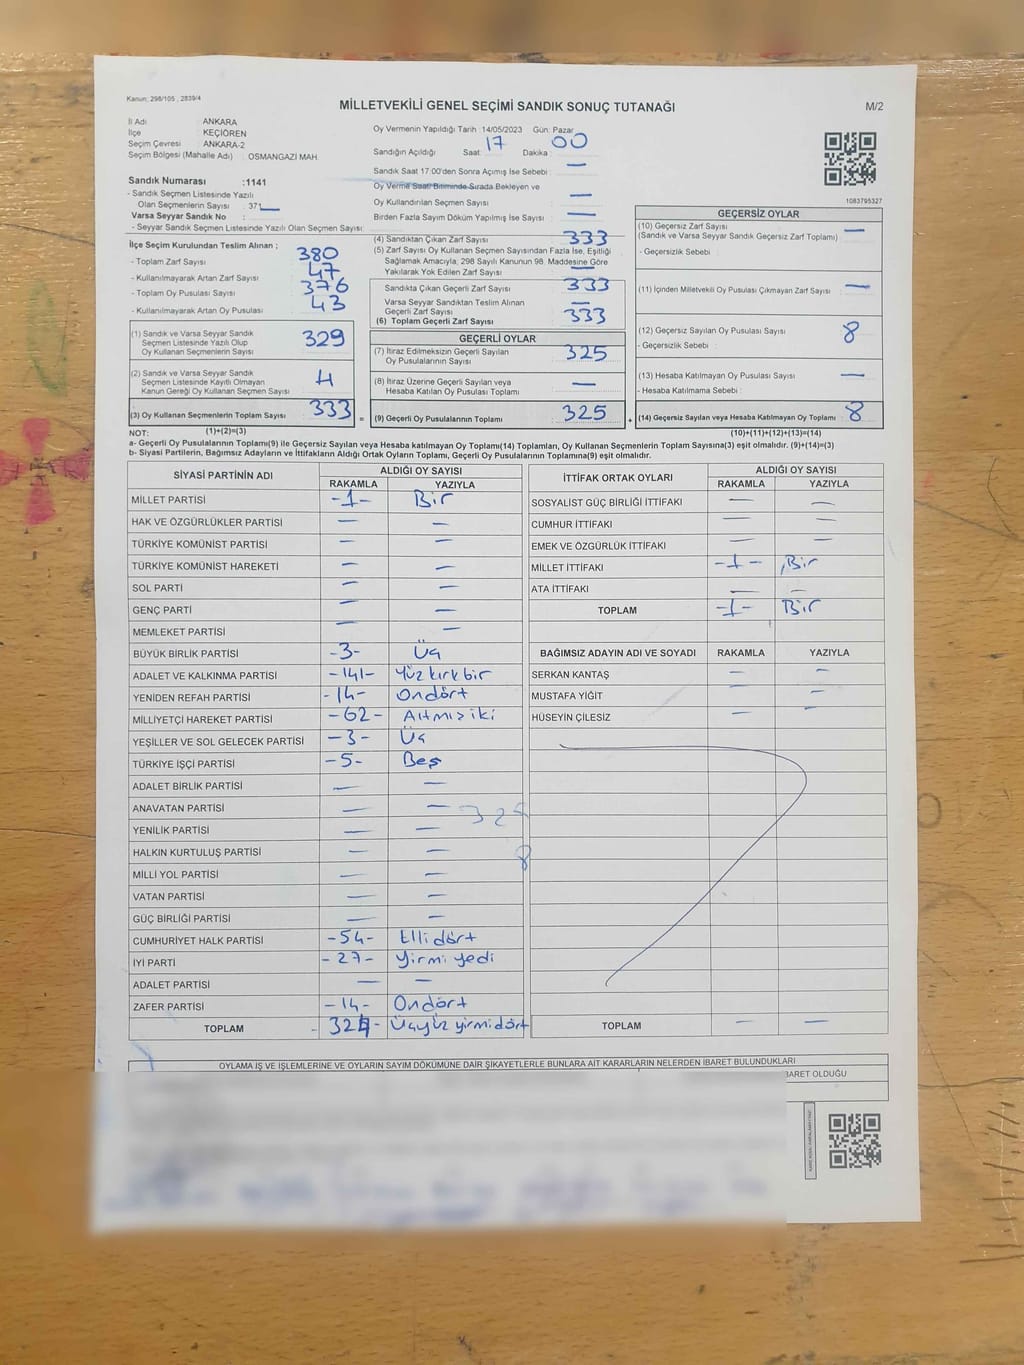 Kanun; 298/105 , 2839/4
MİLLETVEKİLİ GENEL SEÇİMİ SANDIK SONUÇ TUTANAĞI
M/2
İl Adı : ANKARA
İlçe : KEÇİÖREN
Seçim Çevresi : ANKARA-2
Seçim Bölgesi (Mahalle Adı) : OSMANGAZİ MAH.
Sandık Numarası :1141
- Sandık Seçmen Listesinde Yazılı
Olan Seçmenlerin Sayısı : 371
Varsa Seyyar Sandık No :
- Seyyar Sandık Seçmen Listesinde Yazılı Olan Seçmen Sayısı :
İlçe Seçim Kurulundan Teslim Alınan ;
- Toplam Zarf Sayısı : 380
- Kullanılmayarak Artan Zarf Sayısı : 47
- Toplam Oy Pusulası Sayısı : 376
- Kullanılmayarak Artan Oy Pusulası : 43
(1) Sandık ve Varsa Seyyar Sandık
Seçmen Listesinde Yazılı Olup
Oy Kullanan Seçmenlerin Sayısı 329
(2) Sandık ve Varsa Seyyar Sandık
Seçmen Listesinde Kayıtlı Olmayan
Kanun Gereği Oy Kullanan Seçmen Sayısı 4
(3) Oy Kullanan Seçmenlerin Toplam Sayısı 333 =
(1)+(2)=(3)
Oy Vermenin Yapıldığı Tarih :14/05/2023 Gün: Pazar
Sandığın Açıldığı Saat: 17 Dakika : 00
Sandık Saat 17:00'den Sonra Açımış İse Sebebi : —
Oy Verme Saati Bitiminde Sırada Bekleyen ve
Oy Kullandırılan Seçmen Sayısı : —
Birden Fazla Sayım Döküm Yapılmış İse Sayısı : —
(4) Sandıktan Çıkan Zarf Sayısı 333
(5) Zarf Sayısı Oy Kullanan Seçmen Sayısından Fazla İse, Eşitliği
Sağlamak Amacıyla, 298 Sayılı Kanunun 98. Maddesine Göre
Yakılarak Yok Edilen Zarf Sayısı : —
Sandıkta Çıkan Geçerli Zarf Sayısı 333
Varsa Seyyar Sandıktan Teslim Alınan
Geçerli Zarf Sayısı : —
(6) Toplam Geçerli Zarf Sayısı 333
GEÇERLİ OYLAR
(7) İtiraz Edilmeksizin Geçerli Sayılan
Oy Pusulalarının Sayısı 325
(8) İtiraz Üzerine Geçerli Sayılan veya
Hesaba Katılan Oy Pusulası Toplamı —
(9) Geçerli Oy Pusulalarının Toplamı 325 +
1083795327
GEÇERSİZ OYLAR
(10) Geçersiz Zarf Sayısı —
(Sandık ve Varsa Seyyar Sandık Geçersiz Zarf Toplamı)
- Geçersizlik Sebebi :
(11) İçinden Milletvekili Oy Pusulası Çıkmayan Zarf Sayısı —
(12) Geçersiz Sayılan Oy Pusulası Sayısı 8
- Geçersizlik Sebebi :
(13) Hesaba Katılmayan Oy Pusulası Sayısı —
- Hesaba Katılmama Sebebi :
(14) Geçersiz Sayılan veya Hesaba Katılmayan Oy Toplamı 8
(10)+(11)+(12)+(13)=(14)
NOT:
a- Geçerli Oy Pusulalarının Toplamı(9) ile Geçersiz Sayılan veya Hesaba katılmayan Oy Toplamı(14) Toplamları, Oy Kullanan Seçmenlerin Toplam Sayısına(3) eşit olmalıdır. (9)+(14)=(3)
b- Siyasi Partilerin, Bağımsız Adayların ve İttifakların Aldığı Ortak Oyların Toplamı, Geçerli Oy Pusulalarının Toplamına(9) eşit olmalıdır.
SİYASİ PARTİNİN ADI ALDIĞI OY SAYISI
RAKAMLA YAZIYLA
MİLLET PARTİSİ -1- Bir
HAK VE ÖZGÜRLÜKLER PARTİSİ — —
TÜRKİYE KOMÜNİST PARTİSİ — —
TÜRKİYE KOMÜNİST HAREKETİ — —
SOL PARTİ — —
GENÇ PARTİ — —
MEMLEKET PARTİSİ — —
BÜYÜK BİRLİK PARTİSİ -3- Üç
ADALET VE KALKINMA PARTİSİ -141- Yüz kırk bir
YENİDEN REFAH PARTİSİ -14- Ondört
MİLLİYETÇİ HAREKET PARTİSİ -62- Altmış iki
YEŞİLLER VE SOL GELECEK PARTİSİ -3- Üç
TÜRKİYE İŞÇİ PARTİSİ -5- Beş
ADALET BİRLİK PARTİSİ — —
ANAVATAN PARTİSİ — — 325
YENİLİK PARTİSİ — —
HALKIN KURTULUŞ PARTİSİ — — 8
MİLLİ YOL PARTİSİ — —
VATAN PARTİSİ — —
GÜÇ BİRLİĞİ PARTİSİ — —
CUMHURİYET HALK PARTİSİ -54- Elli dört
İYİ PARTİ -27- Yirmi yedi
ADALET PARTİSİ — —
ZAFER PARTİSİ -14- Ondört
TOPLAM - 324- Üçyüz yirmidört
İTTİFAK ORTAK OYLARI ALDIĞI OY SAYISI
RAKAMLA YAZIYLA
SOSYALİST GÜÇ BİRLİĞİ İTTİFAKI — —
CUMHUR İTTİFAKI — —
EMEK VE ÖZGÜRLÜK İTTİFAKI — —
MİLLET İTTİFAKI -1- Bir
ATA İTTİFAKI — —
TOPLAM -1- Bir
BAĞIMSIZ ADAYIN ADI VE SOYADI RAKAMLA YAZIYLA
SERKAN KANTAŞ — —
MUSTAFA YİĞİT — —
HÜSEYİN ÇİLESİZ — —
TOPLAM — —
OYLAMA İŞ VE İŞLEMLERİNE VE OYLARIN SAYIM DÖKÜMÜNE DAİR ŞİKAYETLERLE BUNLARA AİT KARARLARIN NELERDEN İBARET BULUNDUKLARI
BARET OLDUĞU